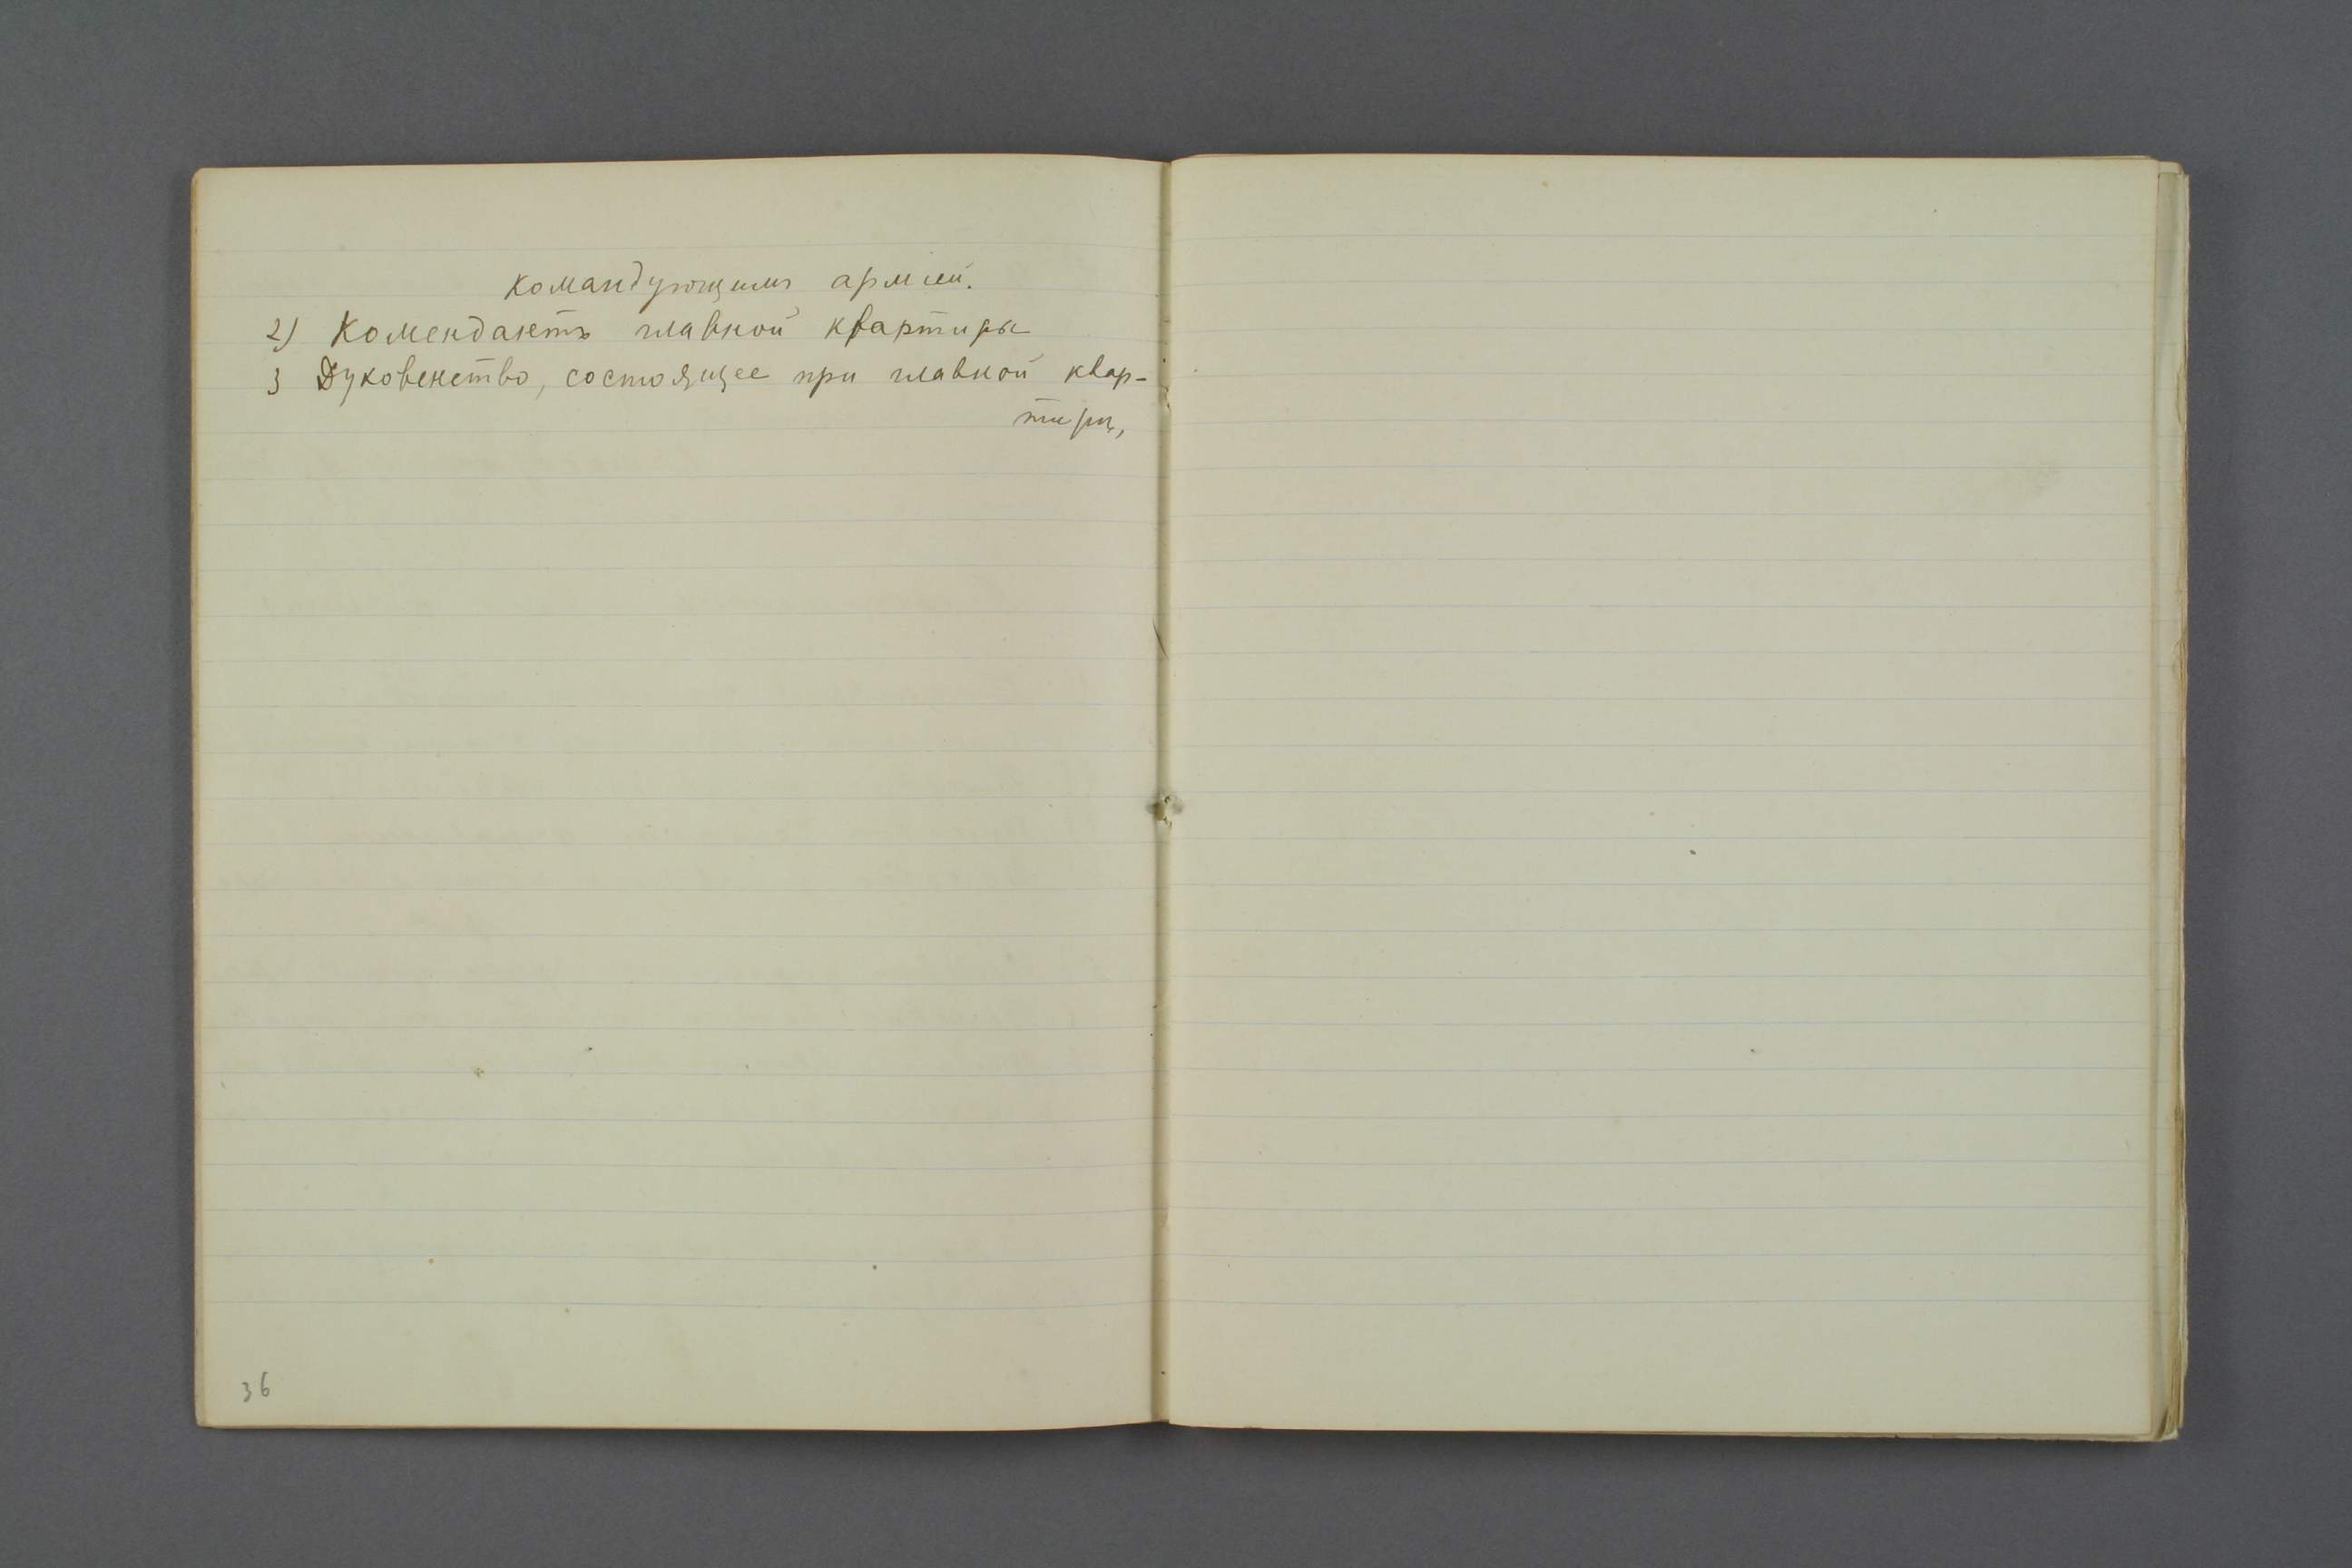 командующимъ арміей.
2) Комендантъ главной квартиры
3 Духовенство, состоящее при главной квар-
тирѣ,
36